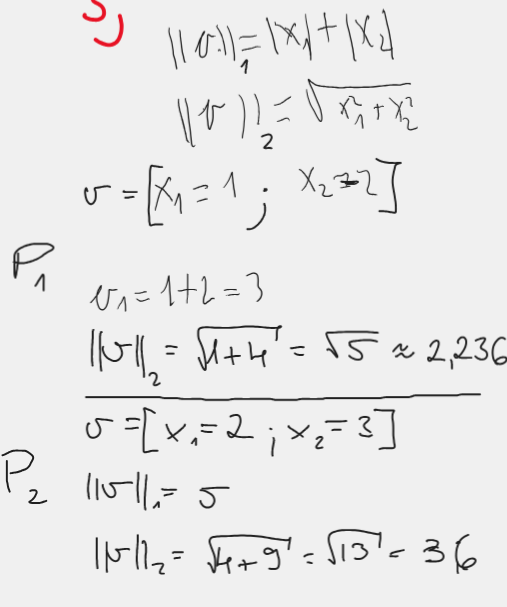 3)
||v||₁ = |x₁| + |x₂|
||v||₂ = √x₁² + x₂²
v = [x₁ = 1 ; x₂ = 2]
P₁
v₁ = 1+2 = 3
||v||₂ = √1+4 = √5 ≈ 2,236
v = [x₁ = 2 ; x₂ = 3]
P₂
||v||₁ = 5
||v||₂ = √4+9 = √13 = 36